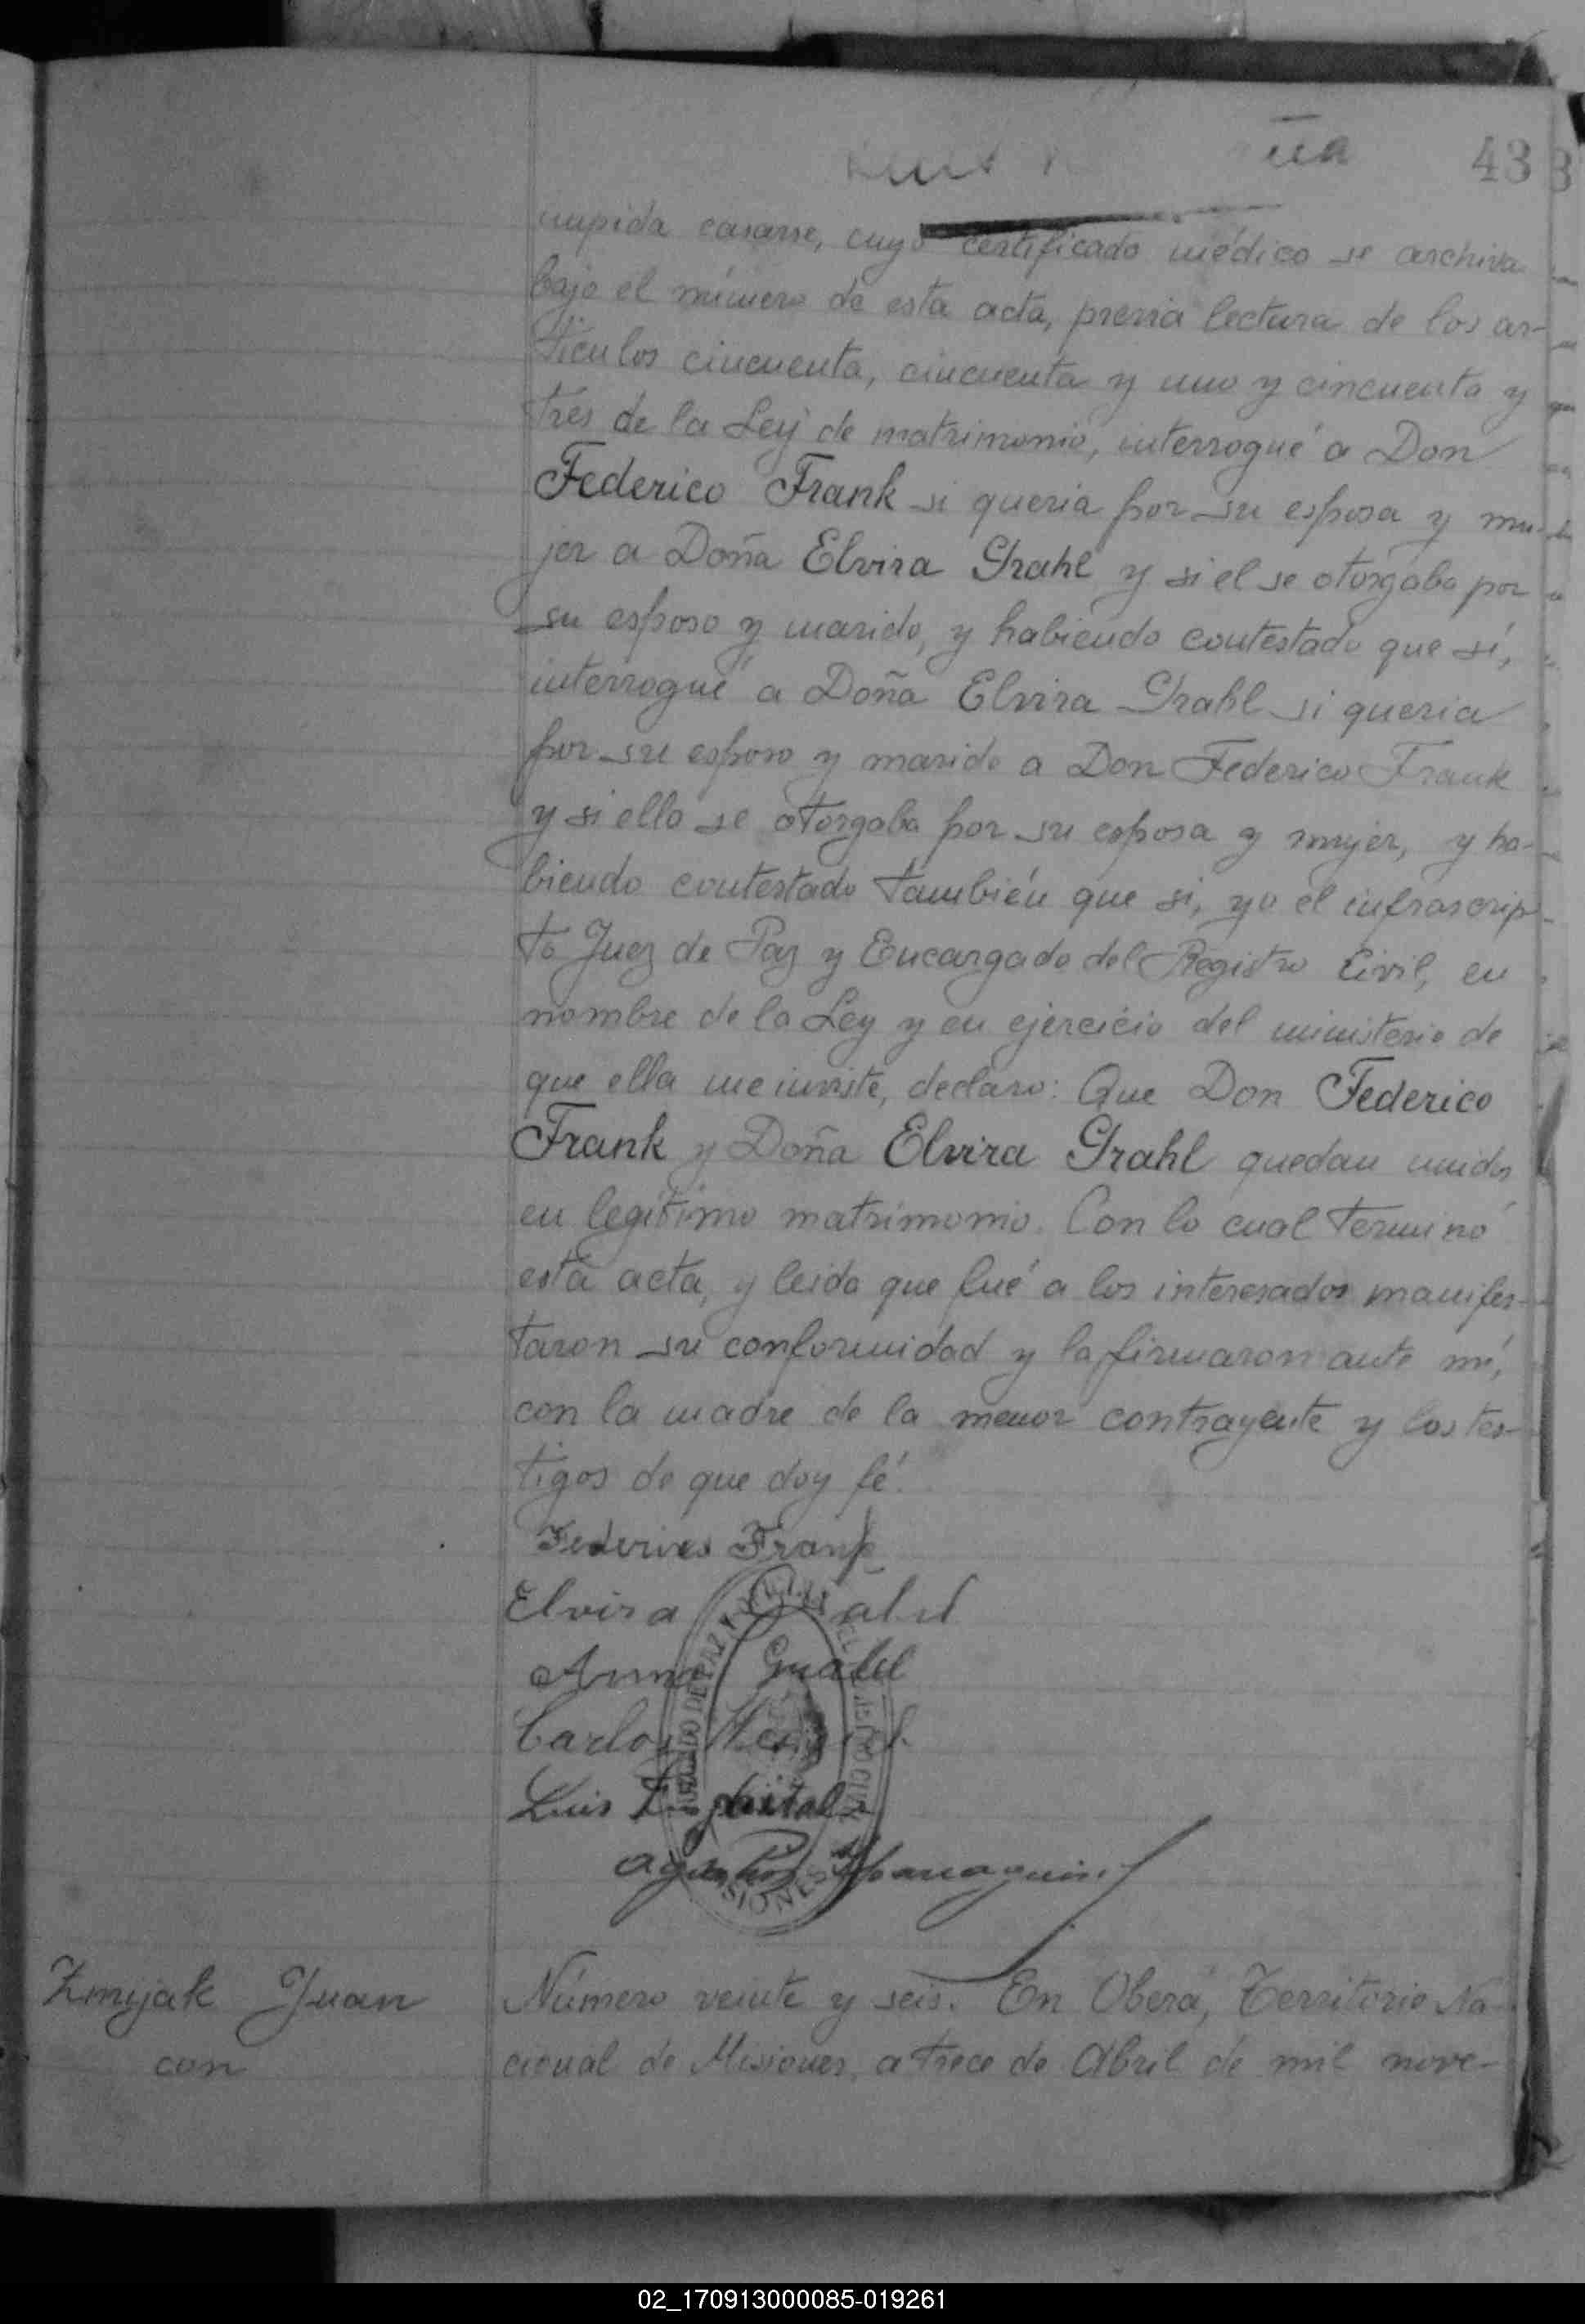 43
impida casarse, cuyo certificado médico se archiva
bajo el número de esta acta, previa lectura de los ar-
tículos cincuenta, cincuenta y uno y cincuenta y
tres de la Ley de matrimonio, interrogué a Don
Federico Frank si queria por su esposa y mu-
jer a Doña Elvira Grahl y si el se otorgaba por
su esposo y marido, y habiendo contestado que sí,
interrogué a Doña Elvira Grahl si queria
por su esposo y marido a Don Federico Frank
y si ella se otorgaba por su esposa y mujer, y ha-
biendo contestado también que si, yo el infrascrip-
to Juez de Paz y Encargado del Registro Civil, en
nombre de la Ley y en ejercicio del ministerio de
que ella me inviste, declaro: Que Don Federico
Frank y Doña Elvira Grahl quedan unidos
en legítimo matrimonio. Con lo cual terminó
esta acta, y leida que fué a los interesados manifes-
taron su conformidad y la firmaron ante mí,
con la madre de la menor contrayente y los tes-
tigos de que doy fé.
Federico Frank
Elvira Grahl
Anna Grahl
Carlos
Luis
Zmijak Juan
con
Número veinte y seis. En Oberá, Territorio Na-
cional de Misiones, a trece de Abril de mil nove-
02_170913000085-019261